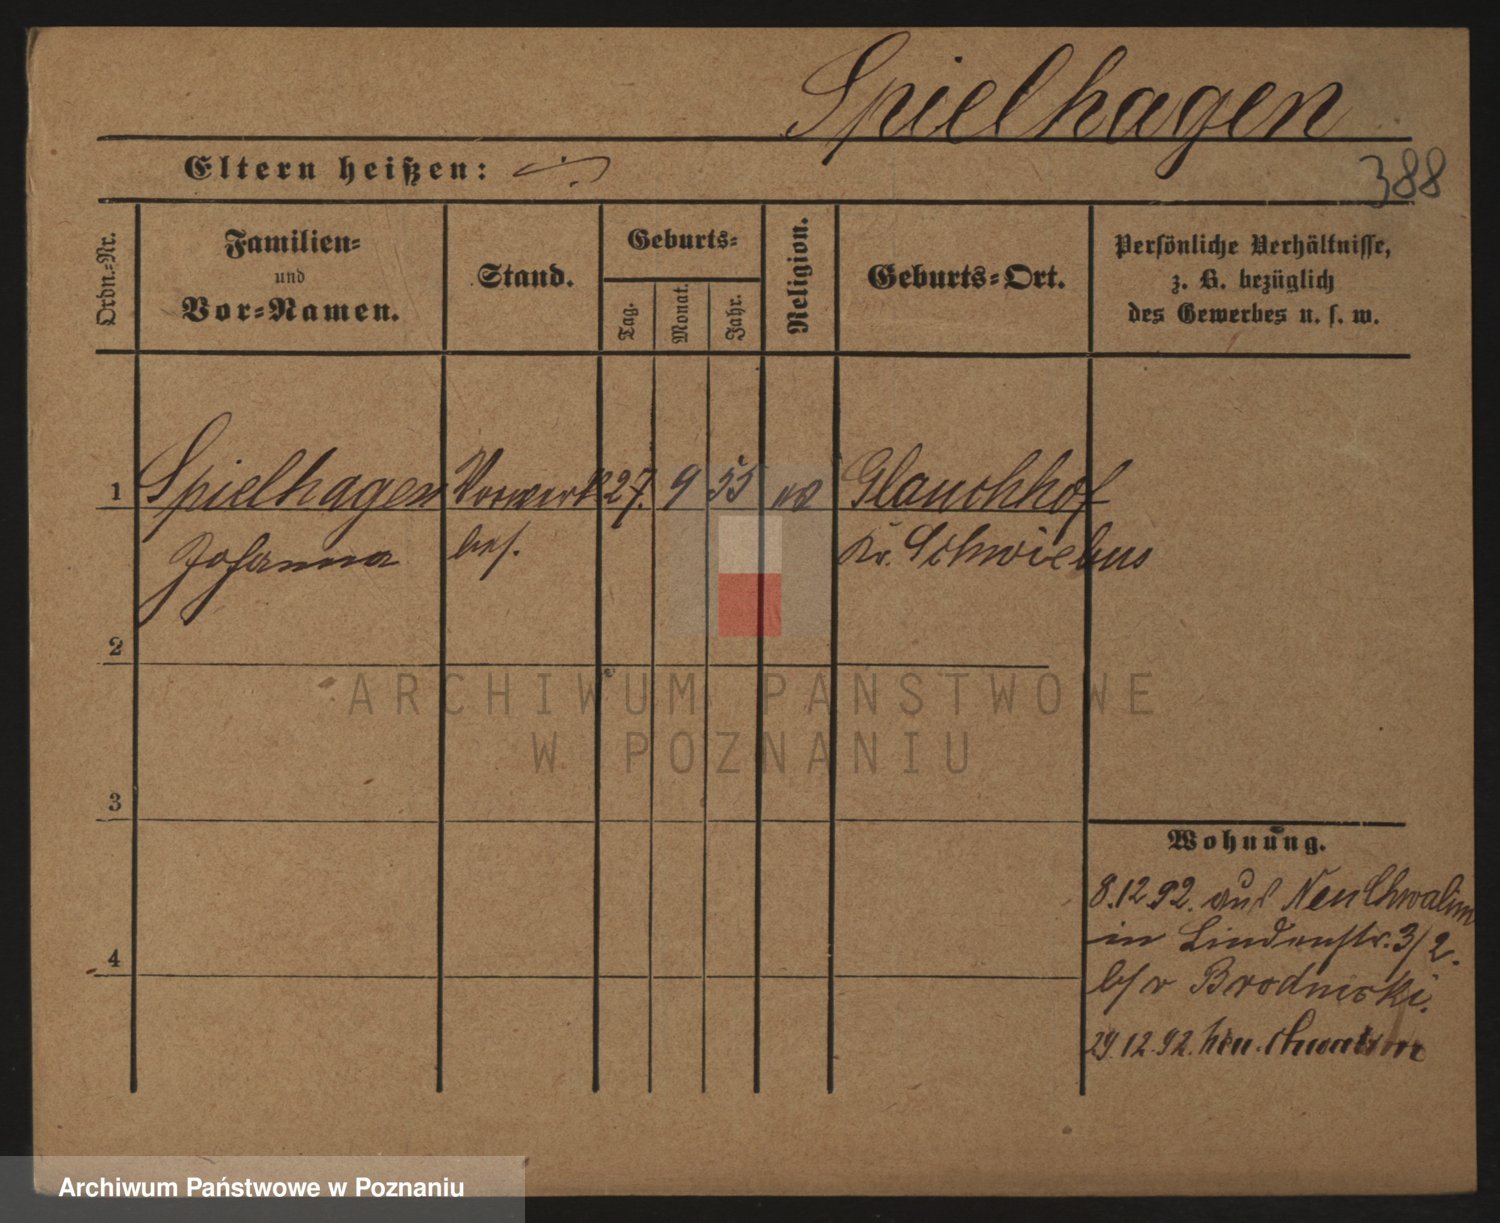 Spielhagen
Eltern heißen:
388
Ordn.-Nr.
Familien-
und
Vor-Namen.
Stand.
Geburts-
Tag.
Monat.
Jahr.
Religion.
Geburts-Ort.
Persönliche Verhältnisse,
z. B. bezüglich
des Gewerbes u. s. w.
1 Spielhagen Vorwerk 27. 9 55 Glauchhof
Johanna bes. Kr. Schwiebus
2
ARCHIWUM PAŃSTWOWE
W POZNANIU
3
Wohnung.
8.12.92. aus Neu Chwalim
in Lindenstr. 3/2.
b/v Brodnicki.
4
29.12.92. Neu. Chwalim
Archiwum Państwowe w Poznaniu